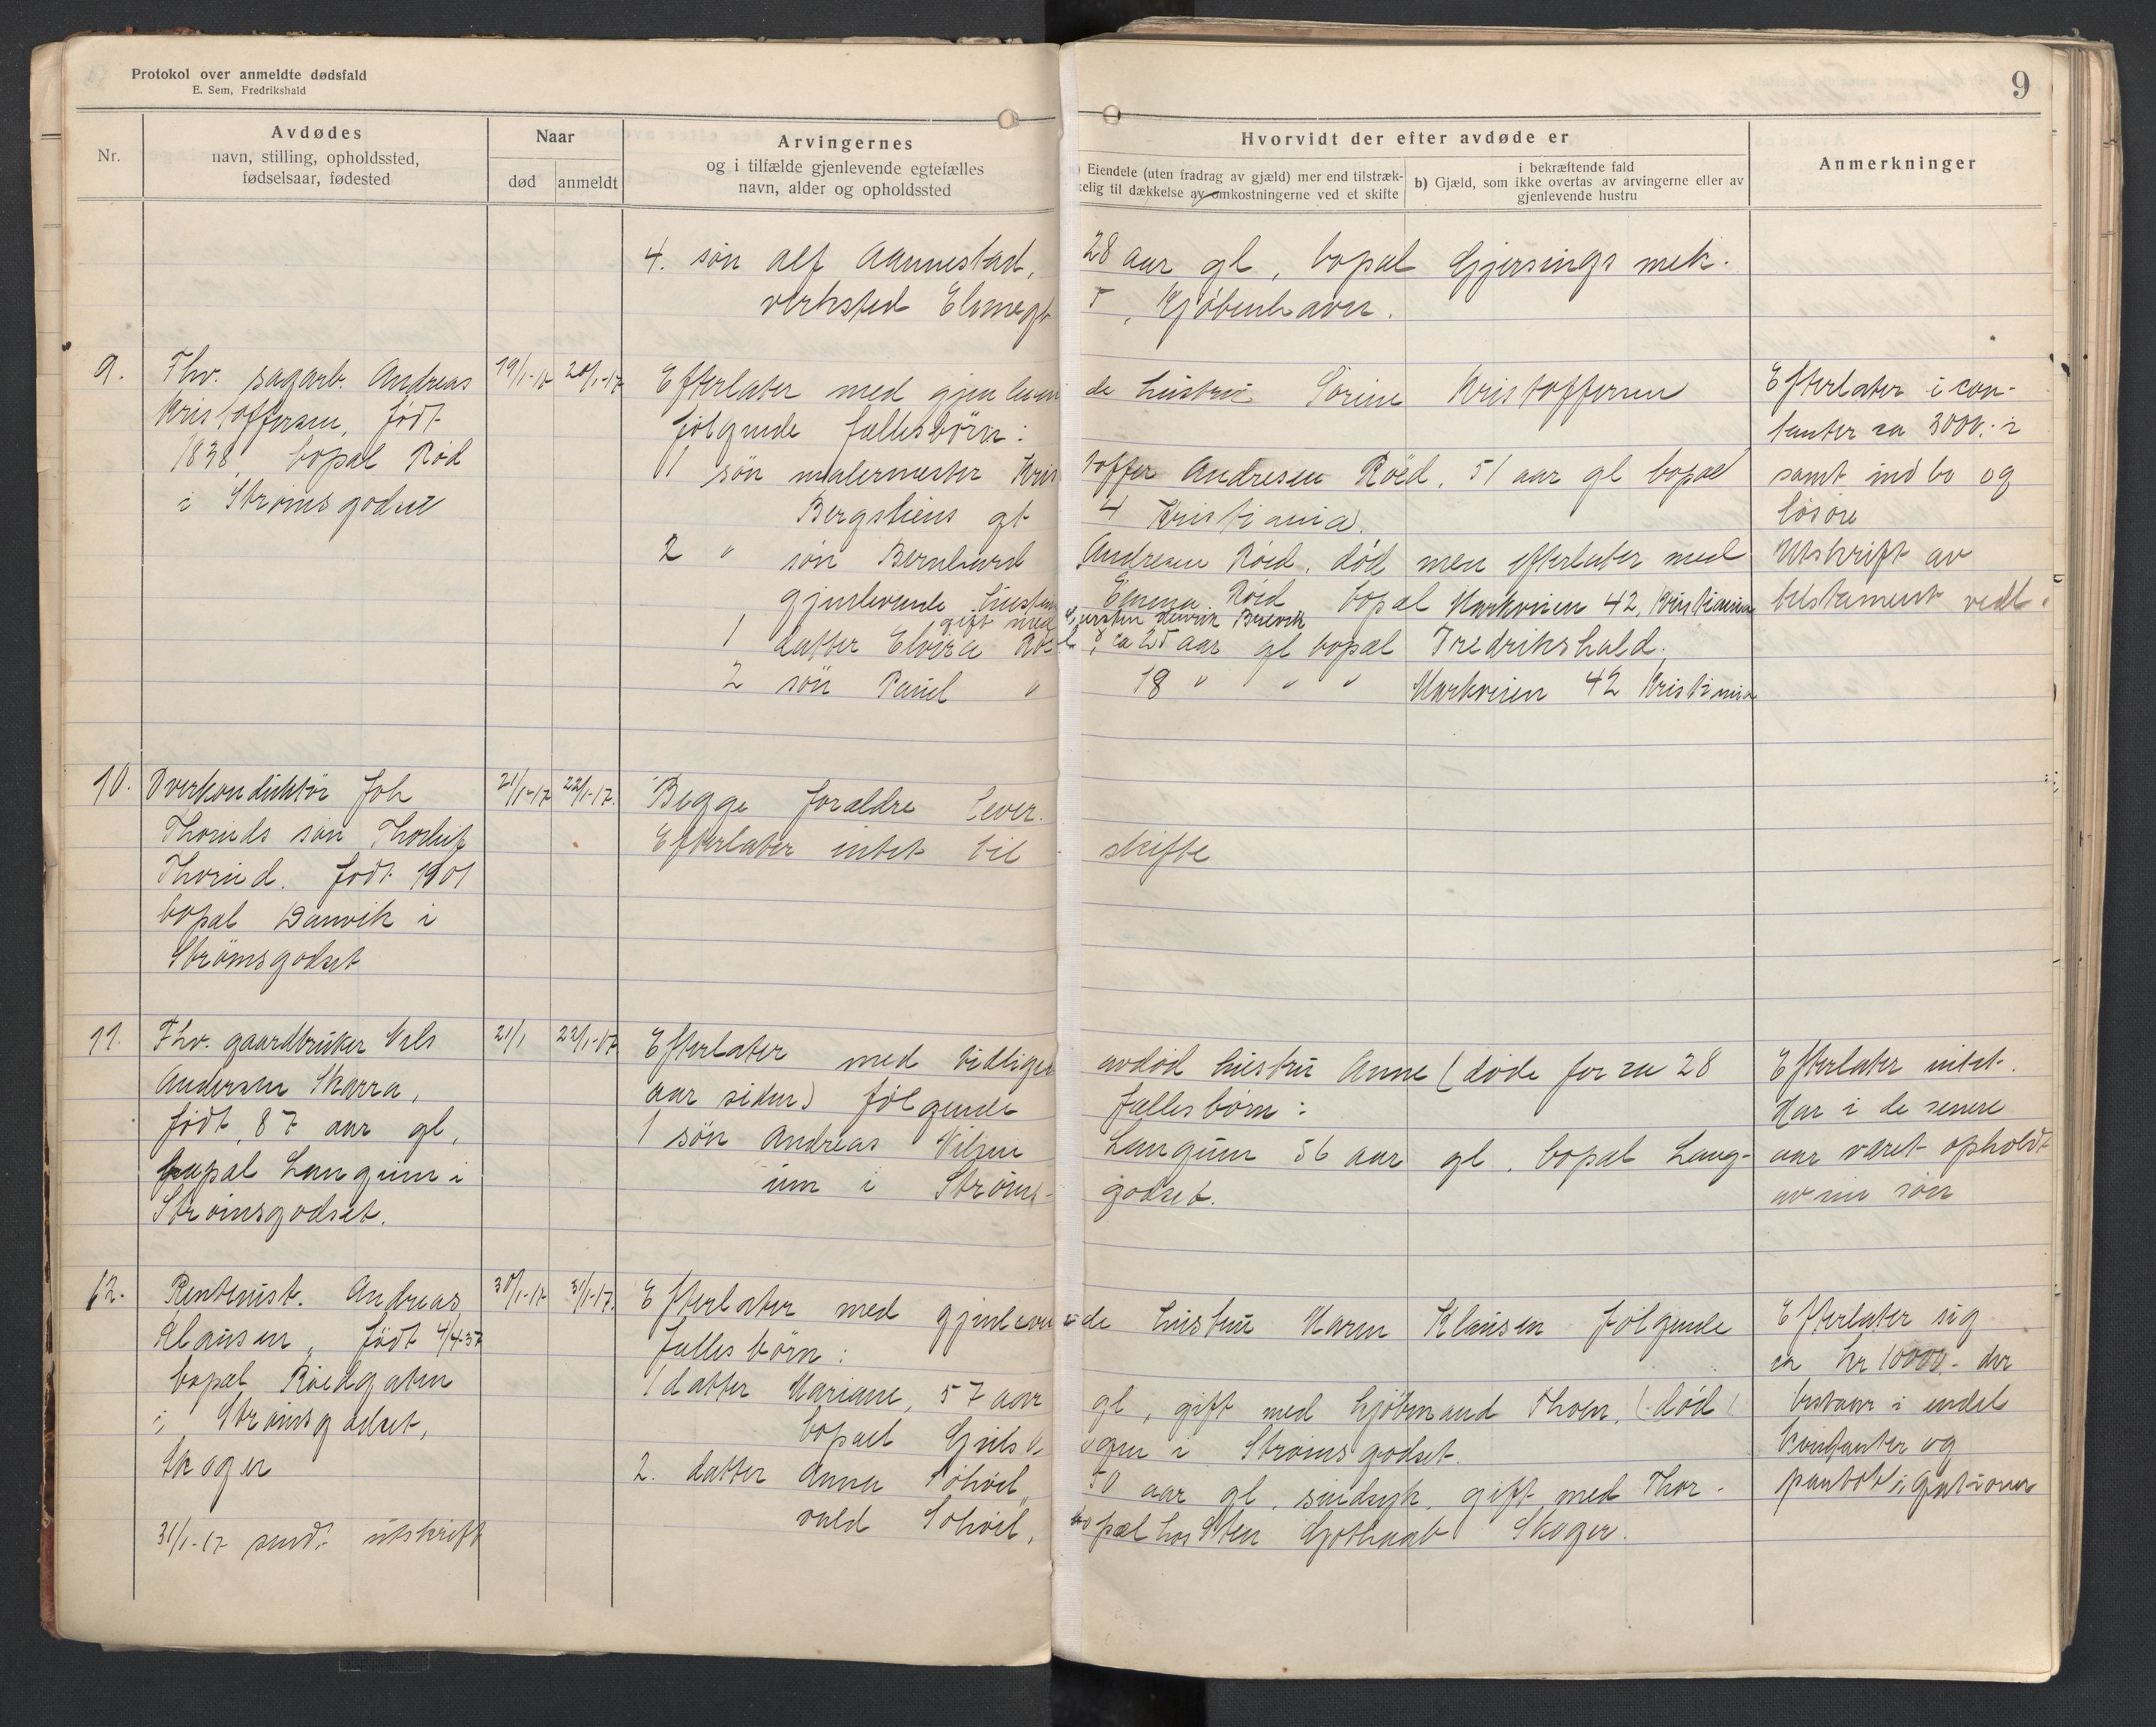 Protokol over anmeldte dødsfald
E. Sem, Fredrikshald
9
Nr.
Avdødes
navn, stilling, opholdssted,
fødselsaar, fødested
Naar
død
anmeldt
Arvingernes
og i tilfælde gjenlevende egtefælles
navn, alder og opholdssted
Hvorvidt der efter avdøde er
Eiendele (uten fradrag av gjæld) mer end tilstræk-
kelig til dækkelse av omkostningerne ved et skifte
i bekræftende fald
b) Gjæld, som ikke overtas av arvingerne eller av
gjenlevende hustru
Anmerkninger
4. søn Alf Aannestad, 28 aar gl, bopæl Gjersings mek.
verksted Elmegt 5, Kjöbenhavn.
9.
Fhv. sagarb. Andreas
Kristoffersen, födt
1838, bopæl Röd
i Strömsgodset
19/1-17
20/1-17
Efterlater med gjenlevende hustru Sörine Kristoffersen
følgende fællesbörn:
1 søn malermester Kristoffer Andresen Röed, 51 aar gl bopæl
Bergsliens gt 4 Kristiania.
2 " søn Bernhard Andresen Röed, död men efterlater med
gjenlevende hustru Emma Röed bopæl Markveien 42, Kristiania
gift med Henrik Brevik
1 datter Elvira Röed, ca 25 aar gl bopæl Fredrikshald.
2 søn Paul " 18 " " " Markveien 42 Kristiania
Efterlater i con-
tanter ca 3000.- i
samt indbo og
løsøre
Utskrift av
testament vedl.
10.
Overkonduktör Joh
Thorinds søn Thorleif
Thorind. födt 1901
bopæl Danvik i
Strömsgodset
21/1-17
22/1-17.
Begge forældre lever.
Efterlater intet til skifte
11.
Fhv. gaardbruker Nils
Andersen Skarra,
födt, 87 aar gl,
bopæl Langum i
Strömsgodset.
21/1
22/1-17
Efterlater med tidligere avdöd hustru Anne (döde for ca 28
aar siden) følgende fællesbörn:
1 søn Andreas Nilsen Langum 56 aar gl. bopæl Lang-
um i Ströms- godset.
Efterlater intet.
Har i de senere
aar været opholdt
av sin søn
12.
Rentenist. Andreas
Klausen, födt 4/4-37
bopæl Röedgaten
i, Strömsgodset,
Skoger
31/1-17 sendt utskrift
30/1-17
31/1-17.
Efterlater med gjenlevende hustru Karen Klausen følgende
fællesbörn:
1 datter Mariane, 57 aar gl, gift med kjöbmand Thoen, (död)
bopæl i Strömsgodset.
2. datter Anna Solvoil, 50 aar gl. sindsyk. gift med Thor-
vald Solvoil, bopæl hos Sten Gothaab Skoger.
Efterlater sig
ca kr 10000.- der
bestaar i endel
kontanter og
pantobligationer